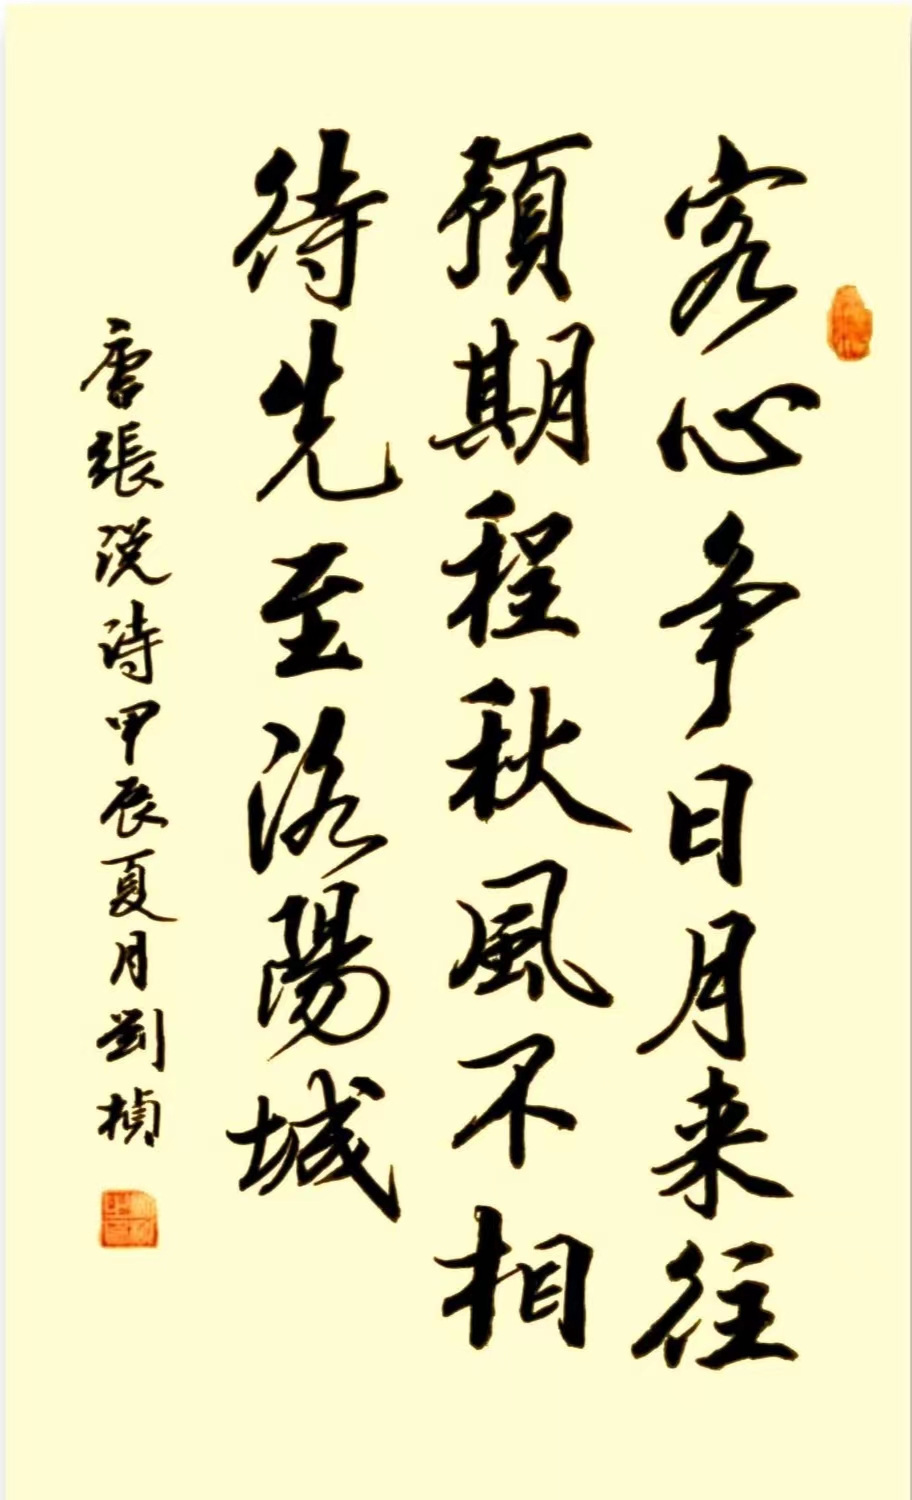 客心争日月来往
預期程秋風不相
待先至洛陽城
唐張説詩甲辰夏月劉楨